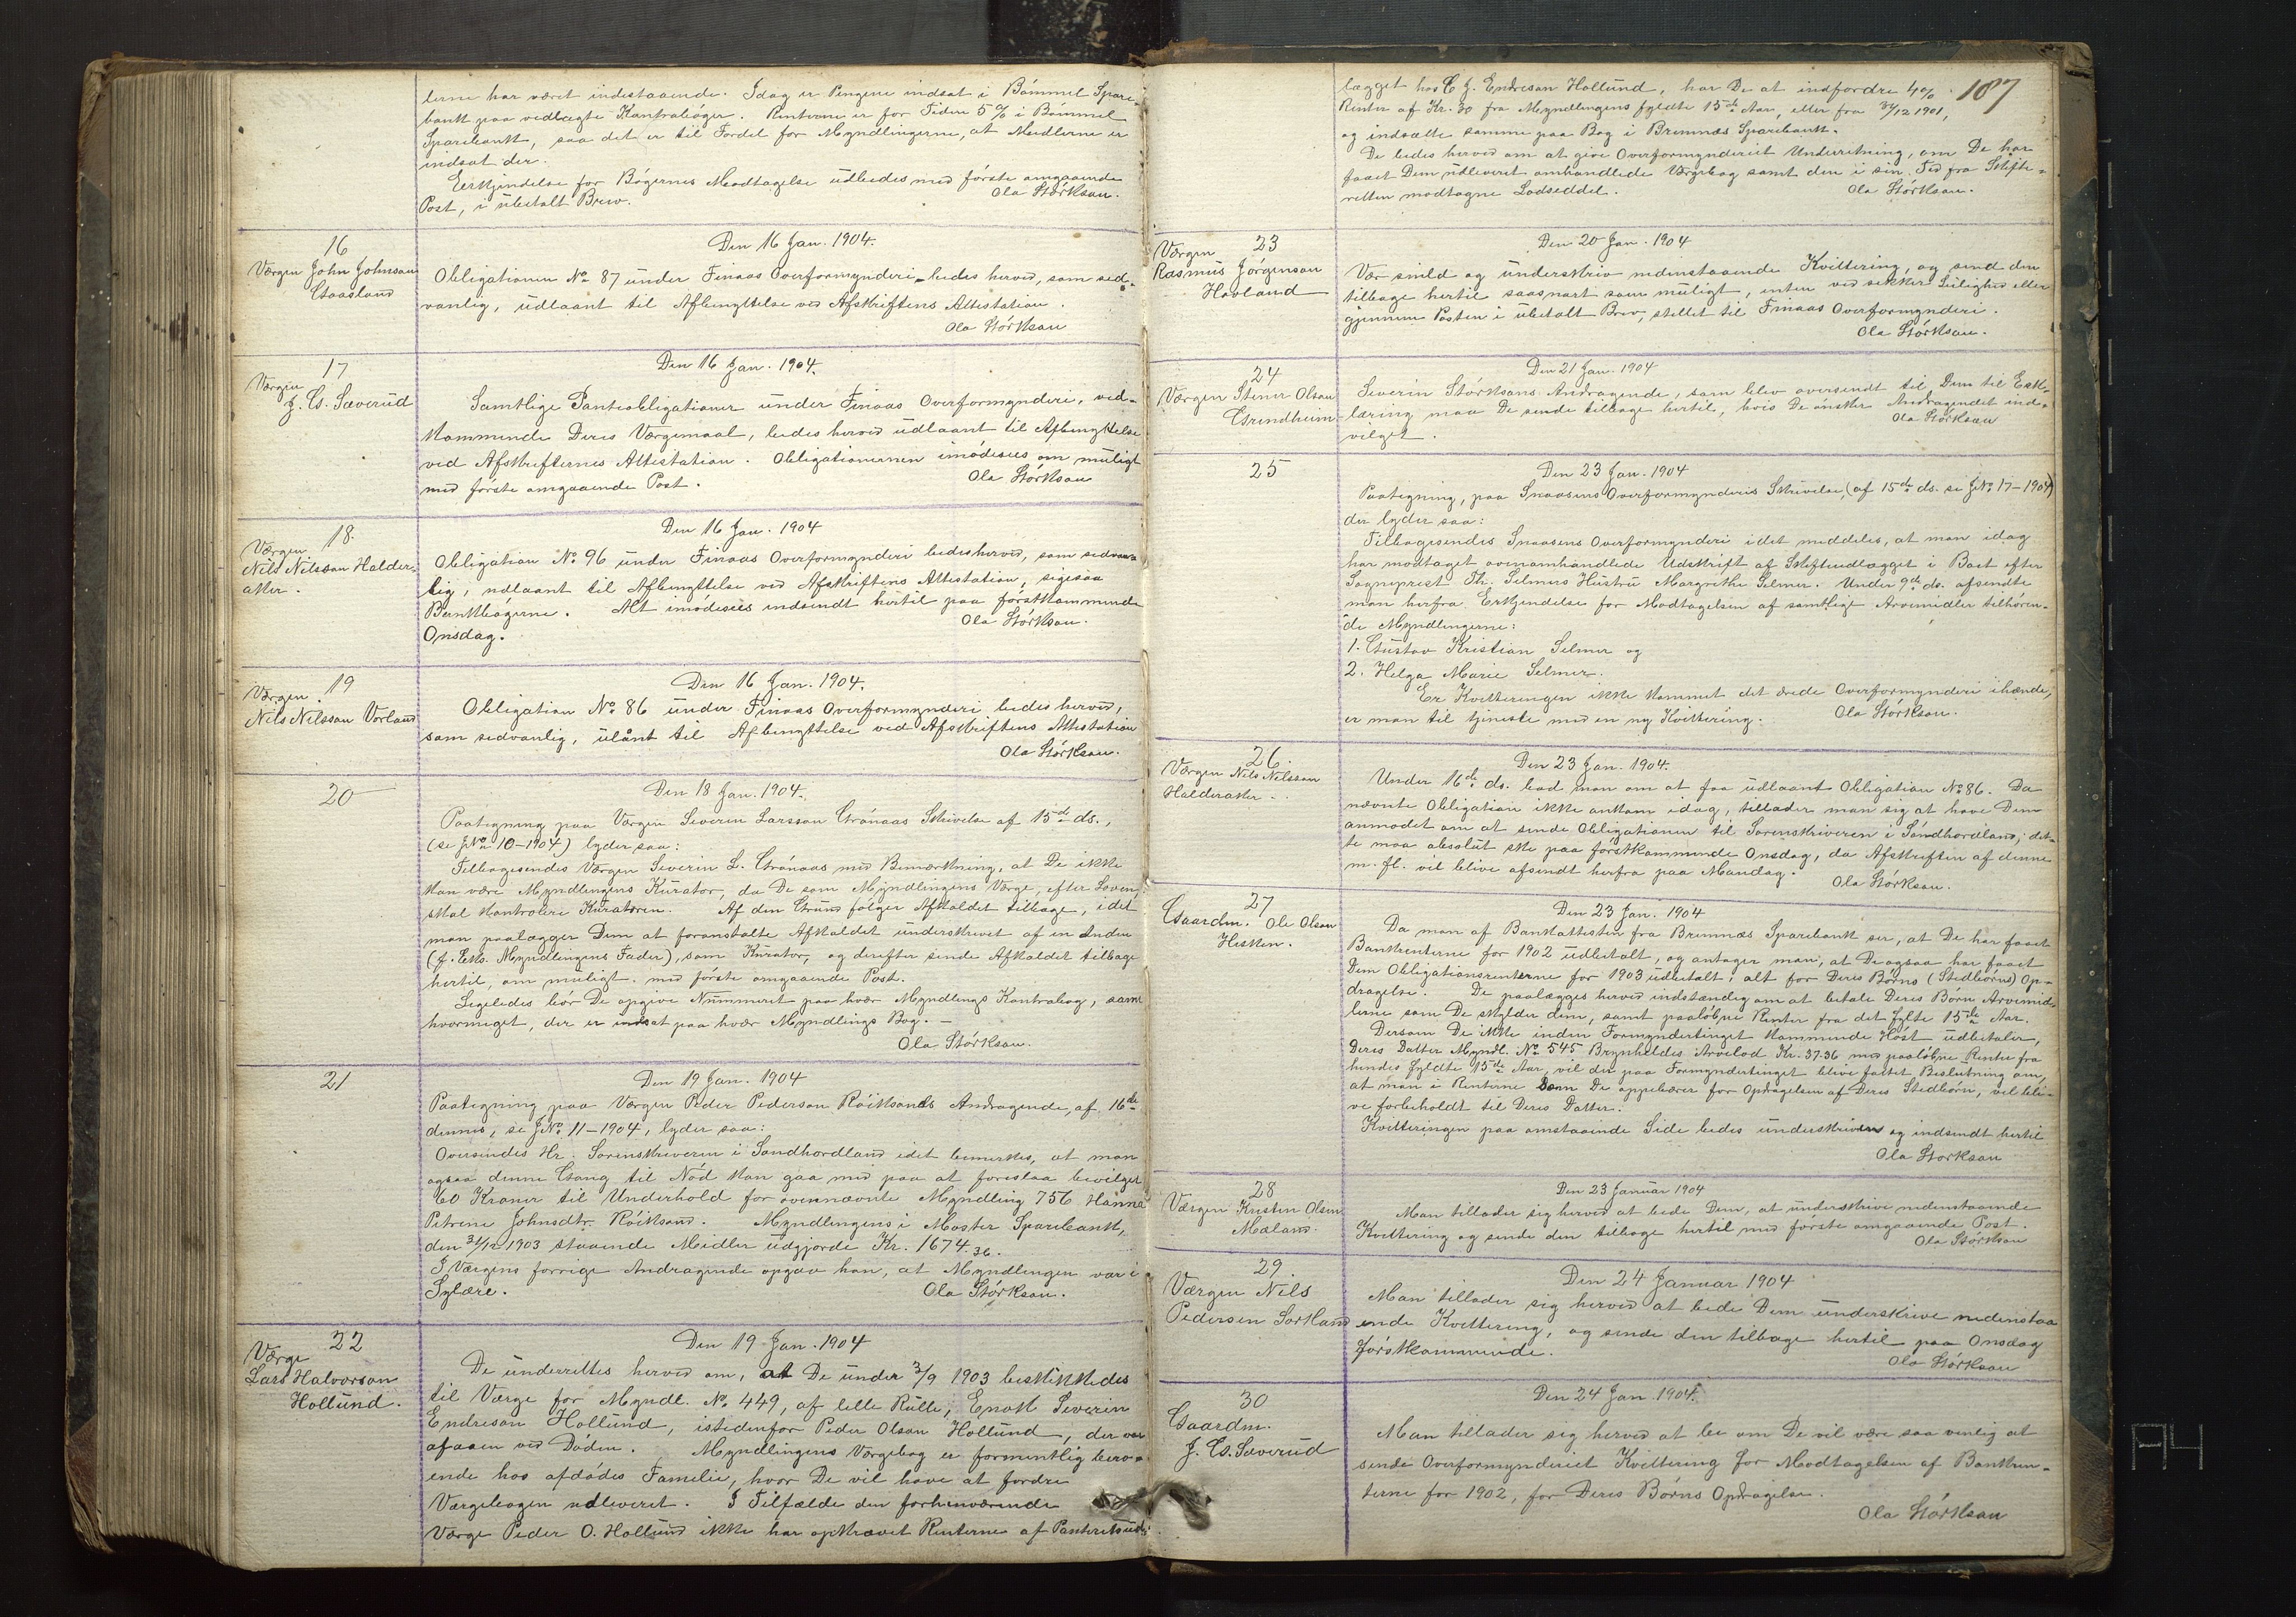 lerne har været indestaaende. Idag er Pengene indsat i Bømmel Spare-
bank paa vedlagte Kontrabøger. Renterne er for Tiden 5 % i Bømmel
Sparebank, saa det er til Fordel for Myndlingerne, at Midlerne er
indsat der.
Erkjendelse for Bøgernes Modtagelse udbedes med første omgaaende
Post, i ubetalt Brev.
Ola Størksøn.
16
Værgen John Johnson
Gaasland
Den 16 Jan. 1904.
Obligationen No 87 under Finaas Overformynderi bedes herved, som sed-
vanlig, udlaant til Afbenyttelse ved Afskriftens Attestation.
Ola Størkson
17
Værgen
J. G. Sæverud
Den 16 Jan. 1904.
Samtlige Panteobligationer under Finaas Overformynderi, ved-
kommende Deres Værgemaal, bedes herved udlaant til Afbenyttelse
ved Afskrifternes Attestation. Obligationernen imødesees om muligt
med første omgaaende Post.
Ola Størkson
18.
Værgen
Nils Nilsson Halder-
aker.
Den 16 Jan. 1904
Obligation No 96 under Finaas Overformynderi bedes herved, som sedvan-
lig, udlaant til Afbenyttelse ved Afskriftens Attestation, ligesaa
Bankbøgerne. Alt imødesees indsendt hertil paa førstkommende
Onsdag.
Ola Størkson.
19
Værgen
Nils Nilsson Vorland
Den 16 Jan. 1904.
Obligation No 86 under Finaas Overformynderi bedes herved,
som sedvanlig, ulånt til Afbenyttelse ved Afskriftens Attestation
Ola Størkson.
20
Den 18 Jan. 1904.
Paategning paa Værgen Severin Larsson Grønaas Skrivelse af 15de ds.,
(se JNo 10-1904) lyder saa:
Tilbagesendes Værgen Severin L. Grønaas med Bemærkning, at De ikke
kan være Myndlingens Kurator, da De som Myndlingens Værge, efter Loven,
skal kontrolere Kuratoren. Af den Grund følger Afkaldet tilbage, idet
man paalægger Dem at foranstalte Afkaldet underskrevet af en Anden
(f. Eks. Myndlingens Fader), som Kurator, og derefter sende Afkaldet tilbage
hertil, om muligt. med første omgaaende Post.
Ligeledes bør De opgive Nummeret paa hver Myndlings Kontrabog, samt
hvormeget, der er indsat paa hver Myndlings Bog. —
Ola Størkson.
21
Den 19 Jan. 1904
Paategning paa Værgen Peder Pederson Røiksunds Andragende, af 16de
dennes, se JNo. 11-1904, lyder saa:
Oversendes Hr. Sorenskriveren i Søndhordland idet bemerkes, at man
ogsaa denne Gang til Nød kan gaa med paa at foreslaa bevilget
60 Kroner til Underhold for ovennævnte Myndling 756 Hanna
Petrine Johnsdtr. Røiksund. Myndlingens i Moster Sparebank,
den 31/12 1903 staaende Midler udgjorde Kr. 1674.36.
I Værgens forrige Andragende opgav han, at Myndlingen var i
Sylære.
Ola Størkson.
22
Værge
Lars Halvorson
Hollund.
Den 19 Jan. 1904
De underrettes herved om, at De under 3/9 1903 beskikkedes
til Værge for Myndl. No. 449, af lille Rulle, Enok Severin
Endreson Hollund, istedenfor Peder Olson Hollund, der var
afgaaen ved Døden. Myndlingens Værgebog er formentlig bero-
ende hos afdødes Familie, hvor De vil have at fordre
Værgebogen udleveret. I Tilfælde den forhenværende
Værge Peder O. Hollund ikke har opkrævet Renterne af Panteretsud-
107
lægget hos E. J. Endreson Hollund, har De at indfordre 4%
Renter af Kr. 30 fra Myndlingens fyldte 15de Aar, eller fra 31/12 1901,
og indsætte samme paa Bog i Bremnes Sparebank.
De bedes herved om at give Overformynderiet Underretning, om De har
faaet Dem udleveret omhandlede Værgebog samt den i sin Tid fra Skifte-
retten modtagne Lodseddel.
Ola Størkson.
23
Værgen
Rasmus Jørgenson
Hovland
Den 20 Jan. 1904
Vær snild og underskriv nedenstaaende Kvittering, og send den
tilbage hertil saasnart som muligt, enten ved sikker Leilighed eller
gjennem Posten i ubetalt Brev, stillet til Finaas Overformynderi.
Ola Størkson.
24
Værgen Stener Olson
Grindheim
Den 21 Jan. 1904
Severin Størksons Andragende, som blev oversendt til Dem til Erk-
læring maa De sende tilbage hertil, hvis De ønsker Andragendet ind-
vilget.
Ola Størkson
25
Den 23 Jan. 1904
Paategning, paa Snaasens Overformynderis Skrivelse, (af 15de ds. se JNo 17-1904)
der lyder saa:
Tilbagesendes Snaasens Overformynderi idet meddeles, at man idag
har modtaget ovenomhandlede Udskrift af Skifteudlægget i Boet efter
Sogneprest Th. Selmers Hustru Margrethe Selmer. Under 9de ds. afsendte
man herfra Erkjendelse for Modtagelsen af samtlige Arvemidler tilhøren-
de Myndlingerne:
1. Gustav Kristian Selmer og
2. Helga Marie Selmer.
Er Kvitteringen ikke kommet det ærede Overformynderi ihænde,
er man til tjeneste med en ny Kvittering.
Ola Størkson.
26.
Værgen Nils Nilsson
Halderaker.
Den 23 Jan. 1904.
Under 16de ds. bad man om at faa udlaant Obligation No 86. Da
nævnte Obligation ikke ankom idag, tillader man sig at have Dem
anmodet om at sende Obligationen til Sorenskriveren i Søndhordland; det-
te maa absolut ske paa førstkommende Onsdag, da Afskriften af denne
m. fl. vil blive afsendt herfra paa Mandag.
Ola Størkson.
27
Gaardm. Ole Olson
Hisken.
Den 23 Jan. 1904
Da man af Bankattesten fra Bremnes Sparebank ser, at De har faaet
Bankrenterne for 1902 udbetalt, og antager man, at De ogsaa har faaet
Dem Obligationsrenterne for 1903 udbetalt, alt for Deres Børns (Stedbørns) Op-
dragelse. De paalægges herved indstændig om at betale Deres Børn Arvemid-
lerne som De skylder dem, samt paaløbne Renter fra det fyldte 15de Aar.
Dersom De ikke inden Formyndertinget kommende Høst udbetaler,
Deres Datter Myndl. No 545 Brynheldes Arvelod Kr. 37.36 med paaløbne Renter fra
hendes fyldte 15de Aar, vil der paa Formyndertinget blive fattet Beslutning om,
at man i Renterne som De oppebærer for Opdragelsen af Deres Stedbørn, vil bli-
ve forbeholdt til Deres Datter.
Kvitteringen paa omstaaende Side bedes underskriven og indsendt hertil
Ola Størkson
28
Værgen Kristen Olsen
Mæland.
Den 23 Januar 1904
Man tillader sig herved at bede Dem, at underskrive nedenstaaende
Kvittering og sende den tilbage hertil med første omgaaende Post.
Ola Størkson
29.
Værgen Nils
Pedersen Sortland
Den 24 Januar 1904
Man tillader sig herved at bede Dem underskrive nedenstaa
ende Kvittering, og sende den tilbage hertil paa Onsdag
førstkommende.
Ola Størkson
30
Gaardm.
J. G. Sæverud
Den 24 Jan. 1904.
Man tillader sig herved at be om De vil være saa venlig at
sende Overformynderiet Kvittering for Modtagelsen af Bankren-
terne for 1902, for Deres Børns Opdragelse.
Ola Størkson